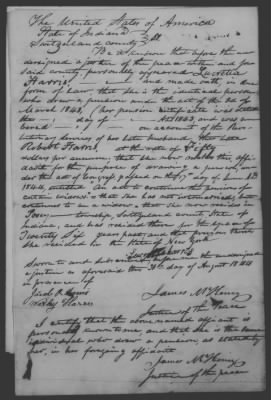 The United States of America
State of Indiana
Switzerland county } SS
Be it known that before the undersigned
a justice of the peace within and for
said county, personally appeared Lucretia
Harris and made oath, in due
form of law, that she is the identical person
who drew a pension under the act of the 3d of
March 1843, her pension certificate was dated
the day of AD 1843, and was numbered
on account of the Revolutionary
services of her late husband, the late
Robert Harris at the rate of Fifty
dollars per annum, that she also makes this affidavit
for the purpose of drawing a pension under
the act of Congress passed on the 17th day of June AD
1844, entitled An act to continue the pensions of
certain widows: that she has not intermarried, but
continues to be a widow; that she now resides in
Posey township, Switzerland county State of
Indiana, and has resided there for the space of
Twenty Six years past and that previous thereto
she resided in the State of New York
Sworn to and subscribed before the undersigned
a justice as aforesaid the 31st day of August 1844
in presence of
James McHenry
Justice of the Peace
I certify that the above named affiant is
personally known to me and that she is the same
individual who drew a pension, as stated by
her, in her foregoing affidavit
James McHenry
Justice of the peace